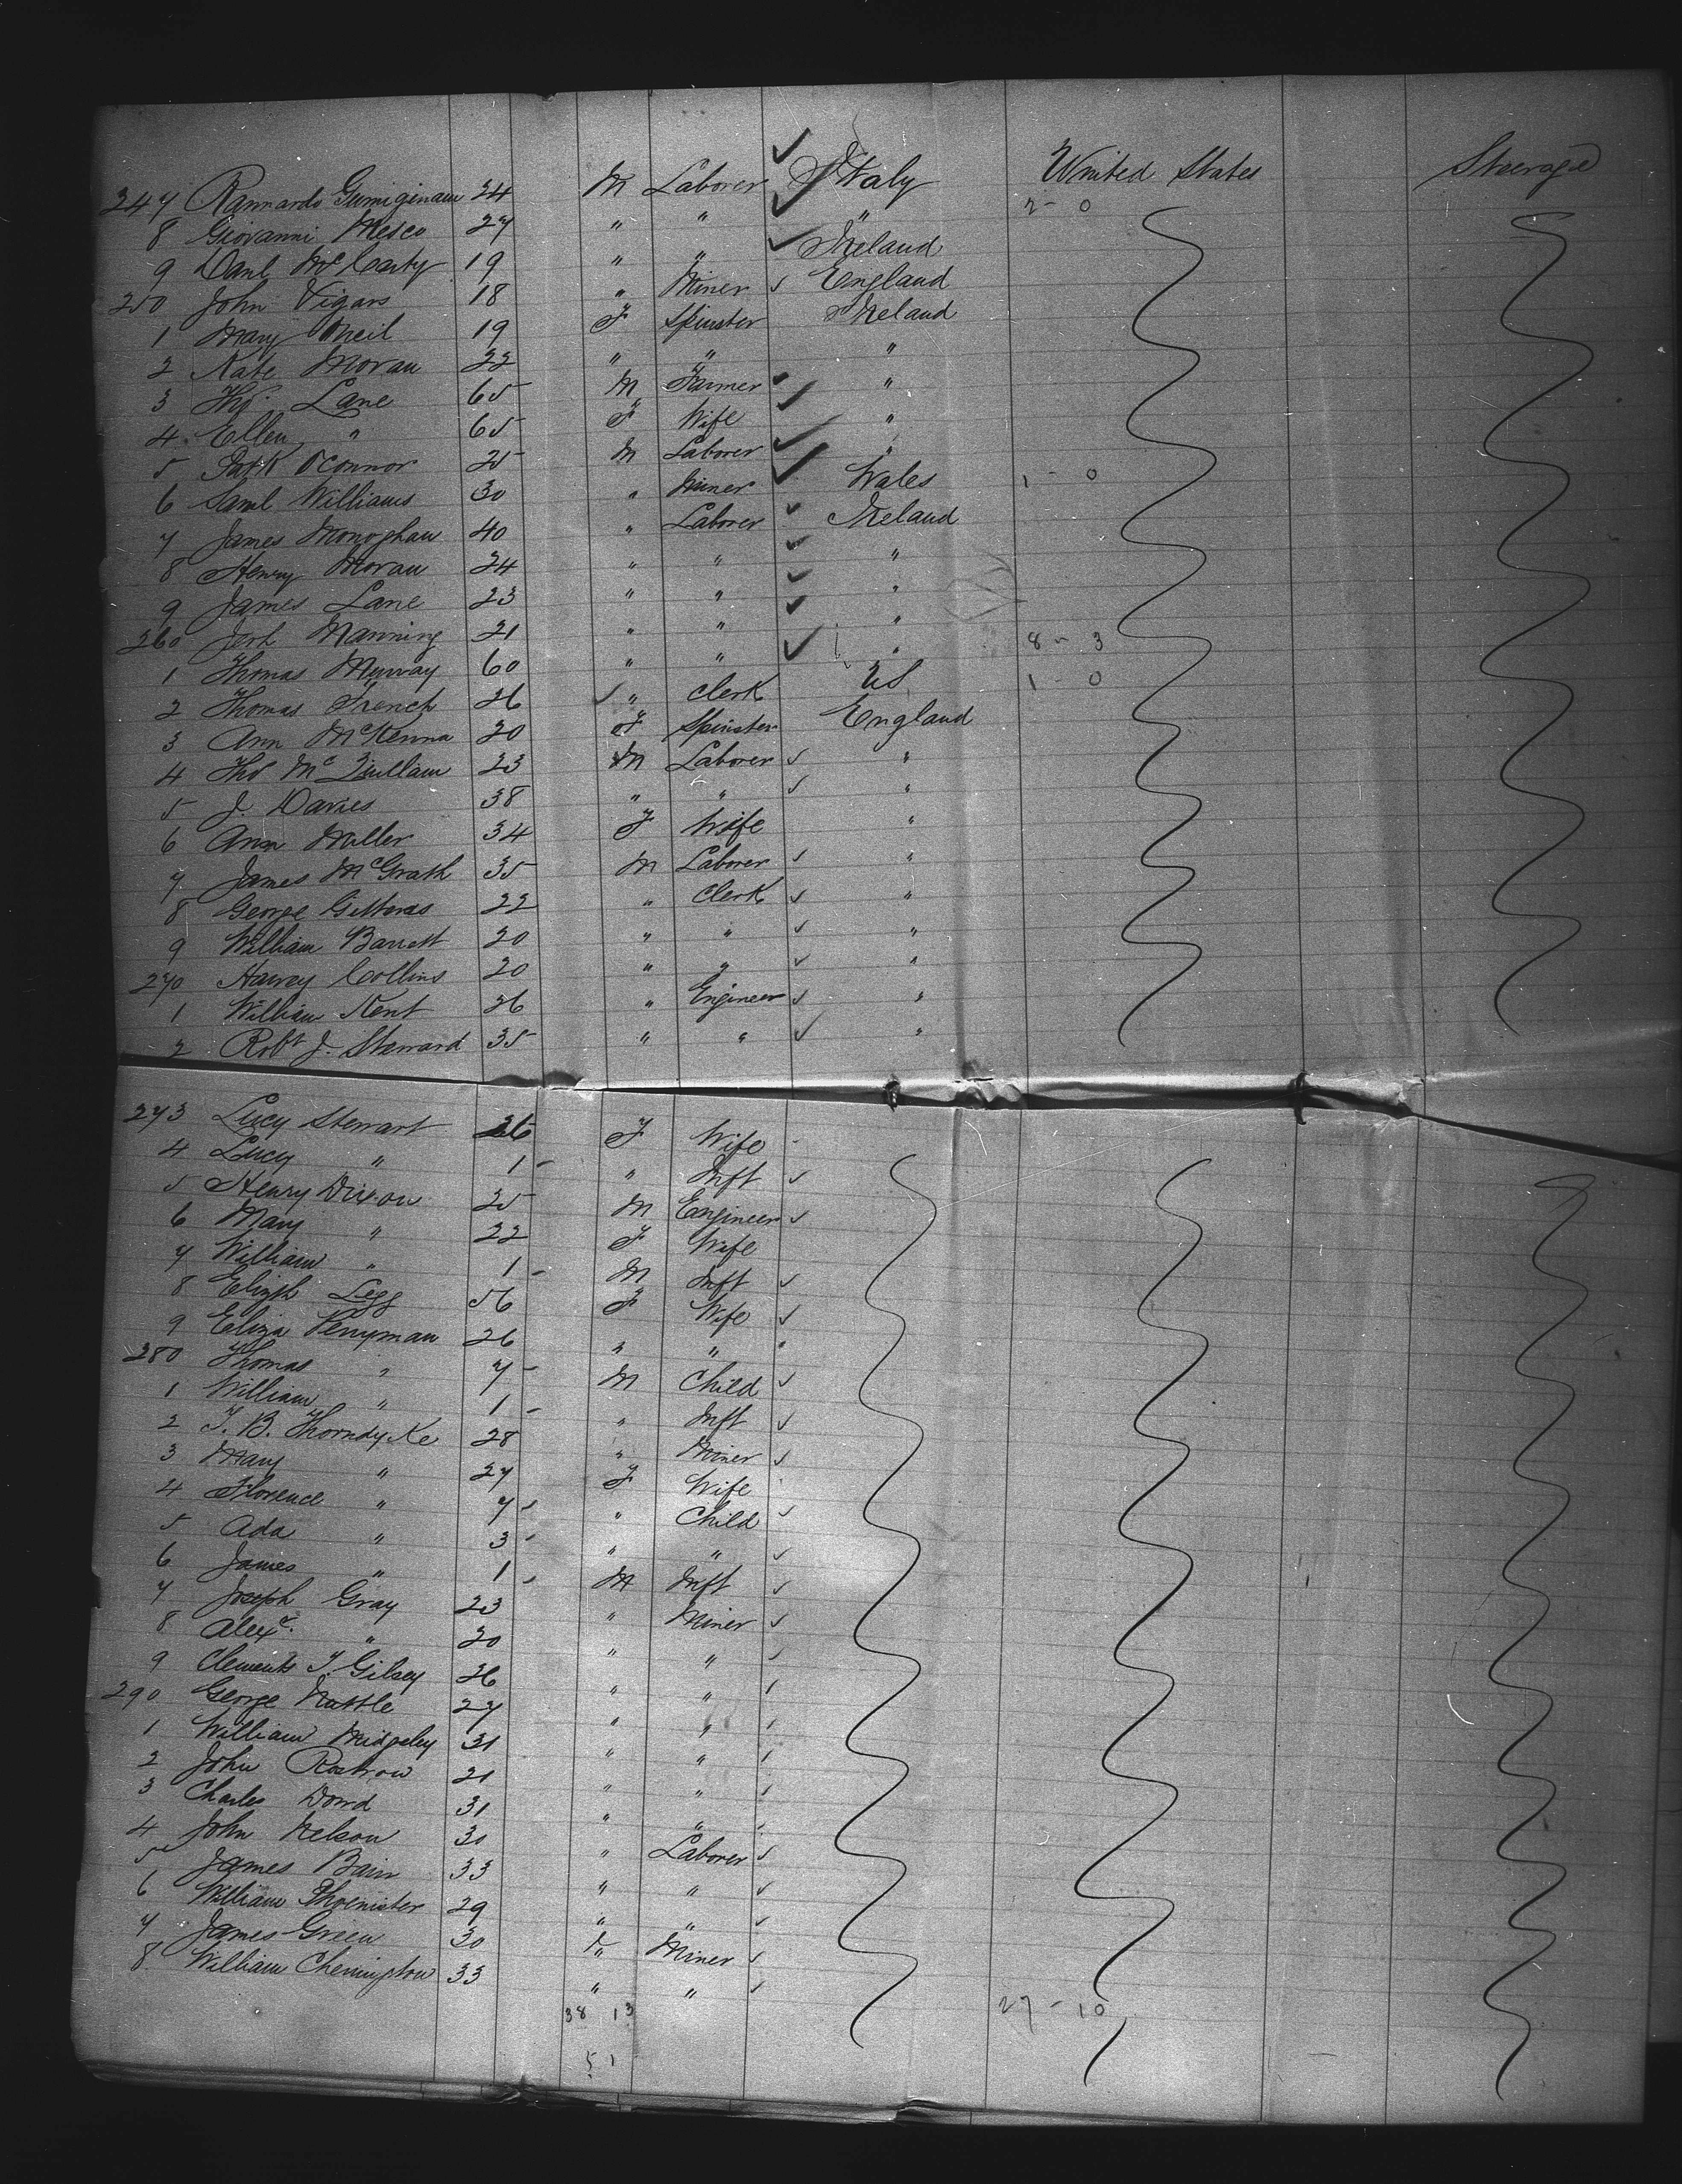 247 Rannardo Gumiginam 24 M Laborer Italy United States Steerage
8 Giovanni Mesco 27 " " " 2 - 0
9 Danl McCarty 19 " " Ireland
250 John Vigars 18 " Miner England
1 Mary ONeil 19 F Spinster Ireland
2 Kate Moran 22 " " "
3 Thos. Lane 65 M Farmer "
4 Ellen " 65 F Wife "
5 Patk OConnor 25 M Laborer "
6 Saml Williams 30 " Miner Wales 1 - 0
7 James Monoghan 40 " Laborer Ireland
8 Henry Moran 24 " " "
9 James Lane 23 " " "
260 Jerh Manning 21 " " "
1 Thomas Murray 60 " " " 8 - 3
2 Thomas French 26 " Clerk US 1 - 0
3 Ann McKenna 20 F Spinster England
4 Thos McQuillam 23 M Laborer "
5 J. Davies 38 " " "
6 Ann Miller 34 F Wife "
7 James McGrath 35 M Laborer "
8 George Gitteras 22 " Clerk "
9 William Barrett 20 " " "
270 Harvey Collins 20 " " "
1 William Kent 26 " Engineer "
2 Robt J. Steward 35 " " "
273 Lucy Stewart 26 F Wife
4 Lucy " 1 " Inft
5 Henry Dixon 25 M Engineer
6 Mary " 22 F Wife
7 William " 1 M Inft
8 Elizth Legg 56 F Wife
9 Eliza Perryman 26 " "
280 Thomas " 7 M Child
1 William " 1 " Inft
2 T. B. Thorndyke 28 " Miner
3 Mary " 27 F Wife
4 Florence " 7 " Child
5 Ada " 3 " "
6 James " 1 M Inft
7 Joseph Gray 23 " Miner
8 Alexr. " 20 " "
9 Clements T. Gilsey 26 " "
290 George Nuttle 27 " "
1 William Midgeley 31 " "
2 John Rostrow 21 " "
3 Charles Dowd 31 " "
4 John Nelson 30 " Laborer
5 James Bain 33 " "
6 William Phoenister 29 " "
7 James Green 30 " Miner
8 William Chenington 33 " "
38 13 27 - 10
51